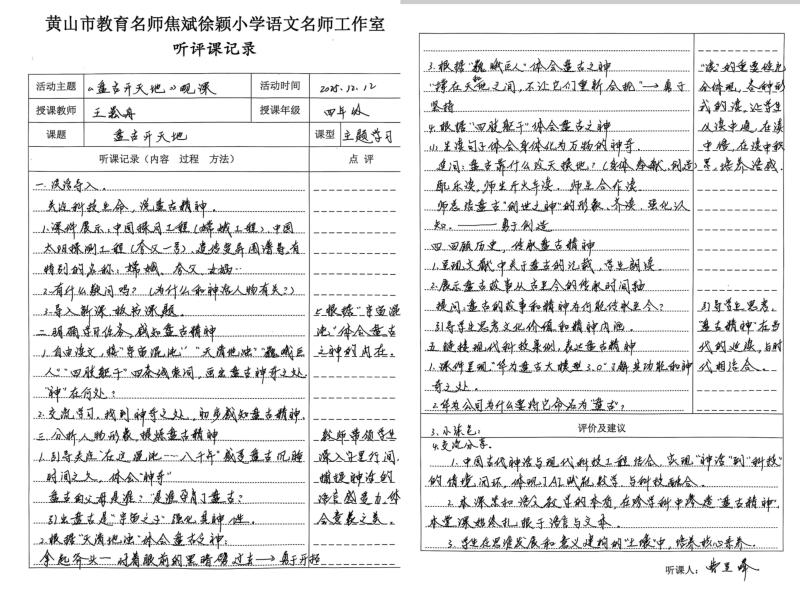 黄山市教育名师焦斌徐颖小学语文名师工作室
听评课记录
活动主题 《盘古开天地》观课 活动时间 2025.12.12
授课教师 王 舟 授课年级 四年级
课题 盘古开天地 课型 主题学习
听课记录（内容 过程 方法） 点 评
一.谈话导入。
关注科技生命，说盘古精神。
1.课件展示：中国探月工程（嫦娥工程）、中国
太阳探测工程（夸父一号）、遗传变异图谱等，有
特别的名称：嫦娥、夸父、女娲…
2.有什么疑问吗？（为什么和神话人物有关？）
3.导入新课，板书课题。
二.明确学习任务，感知盘古精神
1.自由读文，按“宇宙混沌”“天清地浊”“巍峨巨
人”“四肢躯干”四条线索词，画出盘古神奇之处
“神”在何处？
2.交流学习，找到神奇之处，初步感知盘古精神。
三.分析人物形象，提炼盘古精神
1.引导关注“在这混沌……八千年”感受盘古沉睡
时间之久，体会“神奇”
盘古的父母是谁？是谁孕育了盘古？
引出盘古是“宇宙之子”强化其神性。
2.根据“天清地浊”体会盘古之神：
拿起斧头—对着眼前的黑暗劈过去→勇于开拓
1.根据“宇宙混
沌”体会盘古
之神的内在。
教师带领学生
深入字里行间，
捕捉神话的
语言感受力，体
会意义之美。
3.根据“巍峨巨人”体会盘古之神
“撑在天地之间，不让它们重新合拢”→勇于
坚持
4.根据“四肢躯干”体会盘古之神
(1)生读句子体会身体化为万物的神奇。
追问：盘古靠什么改天换地？（身体 奉献、创造）
配乐读，师生开火车读，师生合作读
师总结盘古“创世之神”的形象，齐读，强化认
知。——勇于创造
四.回顾历史，传承盘古精神
1.呈现文献中关于盘古的记载，学生朗读。
2.展示盘古故事从古至今的传承时间轴
提问：盘古的故事和精神为何能传承至今？
引导学生思考文化价值和精神内涵。
五.链接现代科技案例，表达盘古精神
1.课件呈现“华为盘古大模型3.0”了解其功能和神
奇之处。
2.华为公司为什么要将它命名为“盘古”？
“读”的重要性充
分体现，各种形
式的读，让学生
从读中通，在读
中悟，在读中积
累，培养语感。
引导学生思考，
“盘古精神”在当
代的延续，与时
代相结合。
3.小
4.交流分享。
评价及建议
1.中国古代神话与现代科技工程结合，实现“神话”到“科技”
的情境闭环，体现了AI赋能教学、与科技融合。
2.本课坚守语文教学的本真，在跨学科中渗透“盘古精神”，
本堂课始终扎根于语言与文本。
3.学生在思维发展和意义建构的“土壤”中，培养核心素养。
听课人：